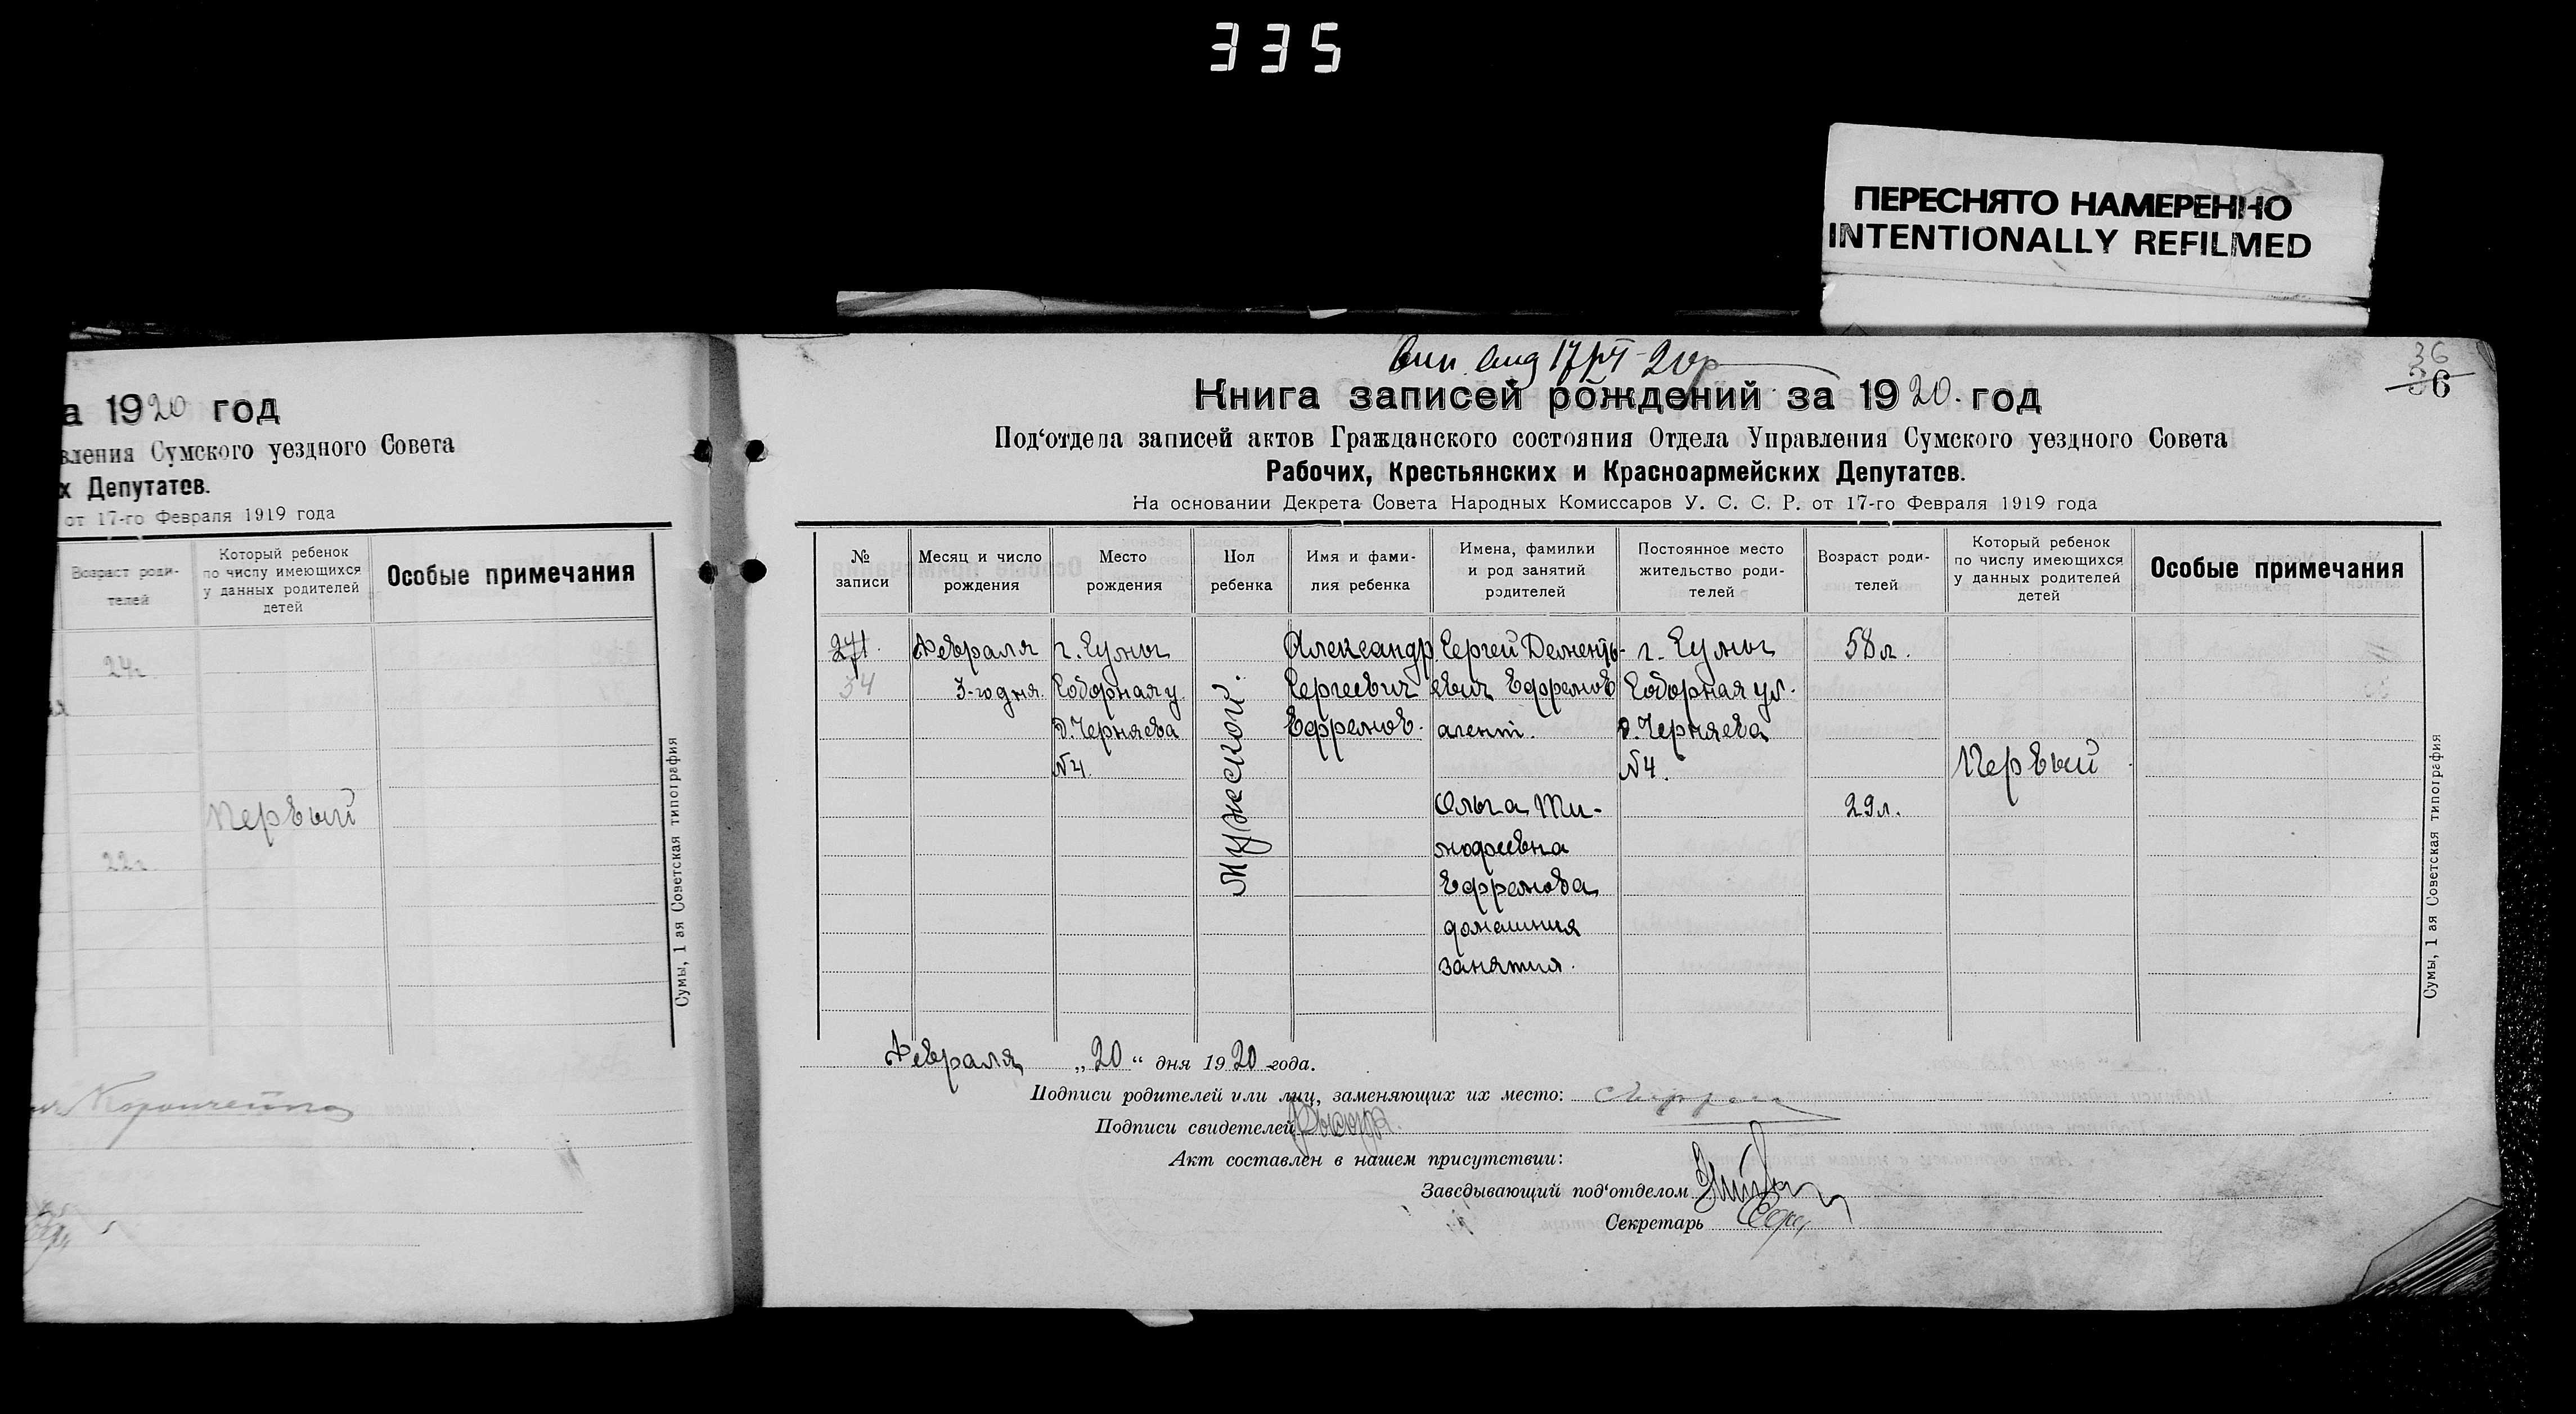 335
ПЕРЕСНЯТО НАМЕРЕННО
INTENTIONALLY REFILMED
а 1920 год
вления Сумского уездного Совета
х Депутатов.
от 17-го Февраля 1919 года
Возраст роди-
телей
Который ребенок
по числу имеющихся
у данных родителей
детей
Особые примечания
24г.
Первый
22г.
Сумы, 1 ая Советская типография
36
36
Книга записей рождений за 1920. год
Под‘отдела записей актов Гражданского состояния Отдела Управления Сумского уездного Совета
Рабочих, Крестьянских и Красноармейских Депутатов.
На основании Декрета Совета Народных Комиссаров У. С. С. Р. от 17-го Февраля 1919 года
№
записи
Месяц и число
рождения
Место
рождения
Пол
ребенка
Имя и фами-
лия ребенка
Имена, фамилии
и род занятий
родителей
Постоянное место
жительство роди-
телей
Возраст роди-
телей
Который ребенок
по числу имеющихся
у данных родителей
детей
Особые примечания
271.
54
Февраля
3-го дня.
г. Сумы
Соборная у.
д. Черняева
№4.
Мужской.
Александр
Сергеевич
Ефремов.
Сергей Дементь-
евич Ефремов
агент.
Ольга Ти-
мофеевна
Ефремова
домашния
занятия.
г. Сумы
Соборная ул.
д. Черняева
№4.
58л.
29л.
Первый
Сумы, 1 ая Советская типография
Февраля „20“ дня 1920 года.
Подписи родителей или лиц, заменяющих их место:
Подписи свидетелей
Акт составлен в нашем присутствии:
Заведывающий под‘отделом
Секретарь